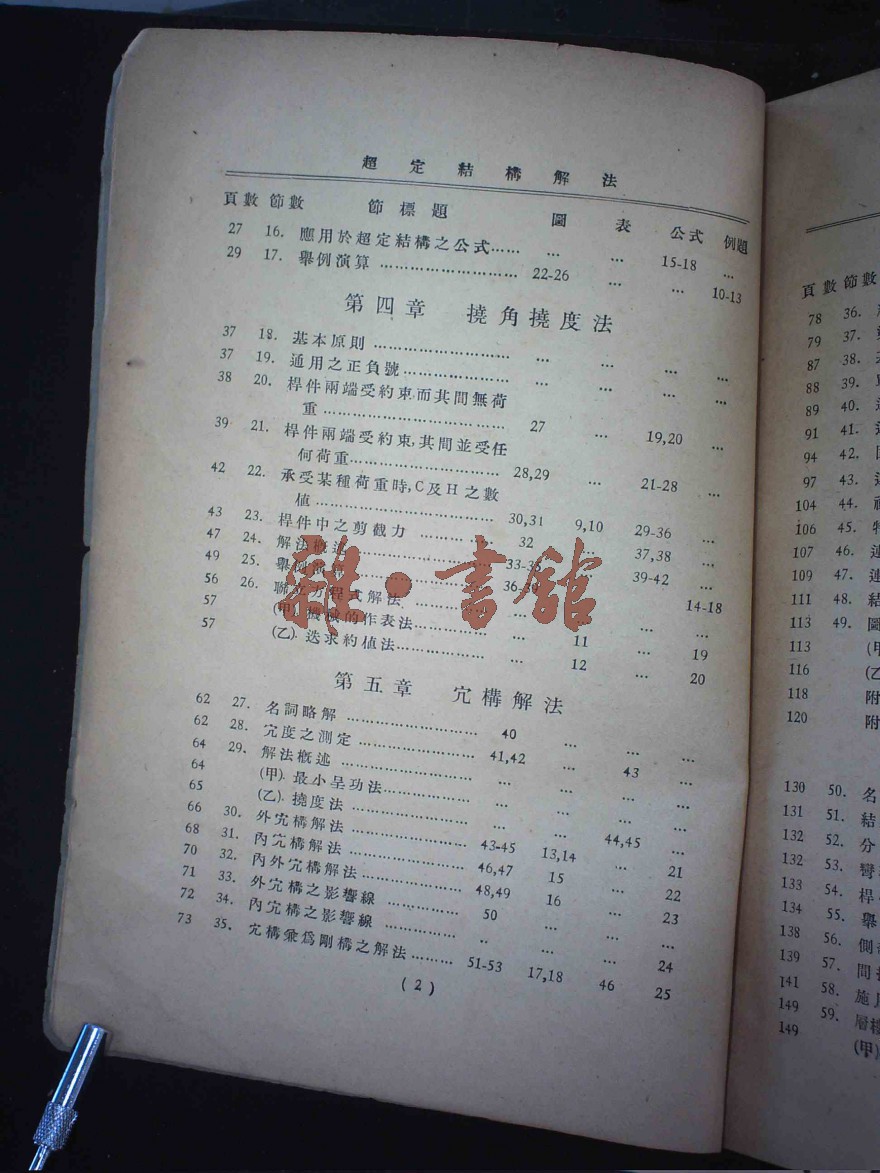 超定結構解法
頁數 節數 節標題 圖 表 公式 例題
27 16. 應用於超定結構之公式…… … … 15-18 …
29 17. 舉例演算 ……………………… 22-26 … … 10-13
第四章 撓角撓度法
37 18. 基本原則 ……………………… … … … …
37 19. 通用之正負號……………………… … … … …
38 20. 桿件兩端受約束,而其間無荷
重 ……………………………… 27 … 19,20 …
39 21. 桿件兩端受約束,其間並受任
何荷重……………………… 28,29 … 21-28 …
42 22. 承受某種荷重時,C及H之數
值 ……………………………… 30,31 9,10 29-36 …
43 23. 桿件中之剪截力 …………… 32 … 37,38 …
47 24. 解法概述 ……………………… 33-35 … 39-42 …
49 25. 舉例演算 ……………………… 36-39 … … 14-18
56 26. 聯立方程式解法 …………… … … … …
57 (甲). 機械的作表法…………… … 11 … 19
57 (乙). 迭求約值法…………… … 12 … 20
第五章 宂構解法
62 27. 名詞略解 ……………………… 40 … … …
62 28. 宂度之測定 …………………… 41,42 … 43 …
64 29. 解法概述 ……………………… … … … …
64 (甲). 最小呈功法…………… … … … …
65 (乙). 撓度法 …………………… … … 44,45 …
66 30. 外宂構解法 …………………… 43-45 13,14 … 21
68 31. 內宂構解法 …………………… 46,47 15 … 22
70 32. 內外宂構解法 ……………… 48,49 16 … 23
71 33. 外宂構之影響線 …………… 50 … … …
72 34. 內宂構之影響線 …………… .. … … 24
73 35. 宂構兼為剛構之解法……… 51-53 17,18 46 25
(2)
雜·書館
頁數 節數
78 36.
79 37.
87 38.
88 39.
89 40.
91 41.
94 42.
97 43.
104 44.
106 45. 特
107 46. 連
109 47. 連
111 48. 結
113 49. 圖
113 (甲
116 (乙
118 附
120 附
130 50. 名
131 51. 結
132 52. 分
132 53. 彎
133 54. 桿
134 55. 舉
138 56. 側
139 57. 間
141 58. 施
149 59. 層樓
149 (甲)